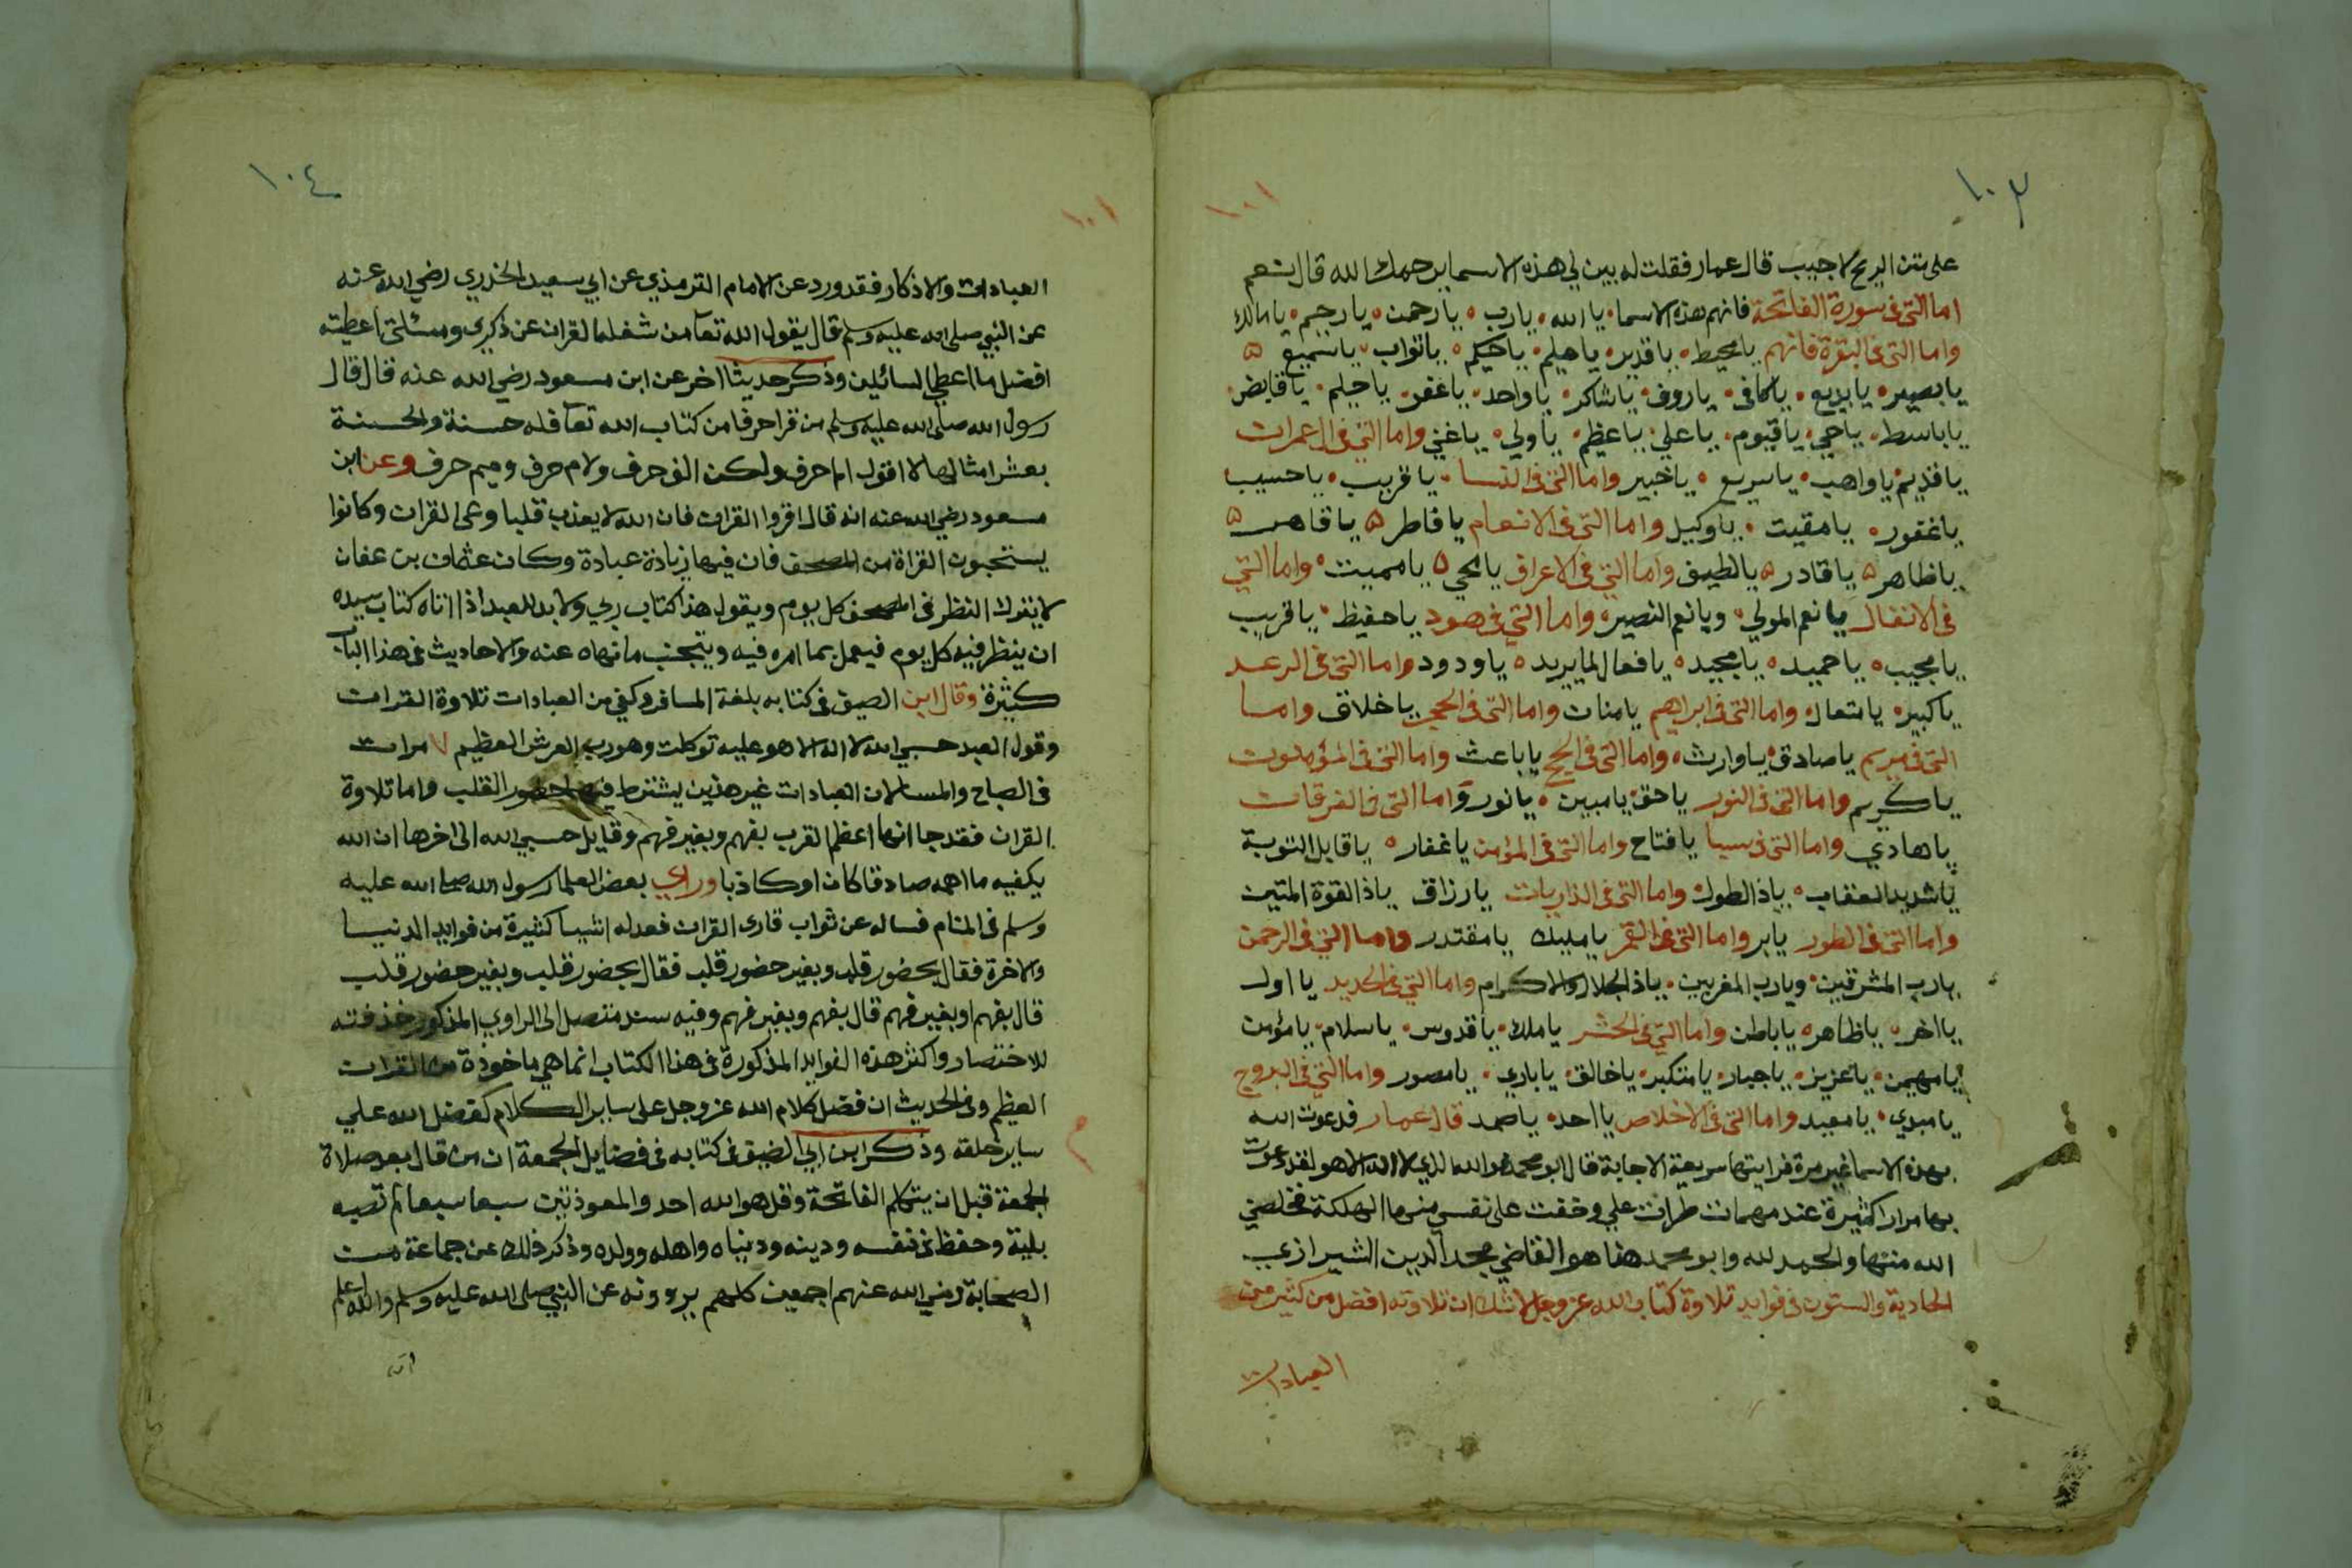 ١٠٣
١٠١
على متن الريح لاجيب قال عمار فقلت له بين لي هذه الاسما يرحمك الله قال نعم
اما التى فى سورة الفاتحة فانهم هذه الاسما يا الله يا رب يا رحمن يا رحيم يا مالك
واما التى فى البقرة فانهم يا محيط يا قدير يا عليم يا حكيم يا تواب يا سميع
يا بصير يا بديع يا كافى يا روف يا شاكر يا واحد يا غفر يا حليم يا قابض
يا باسط يا حي يا قيوم يا علي يا عظيم يا ولي يا غني واما التى فى ال عمران
يا قديم يا واهب يا سريع يا خبير واما التى فى النسا يا قريب يا حسيب
يا غفور يا مقيت يا وكيل واما التى فى الانعام يا فاطر يا قاهر
يا ظاهر يا قادر يا لطيف واما التى فى الاعراف يا محي يا مميت واما التى
فى الانفال يا نعم المولي ويا نعم النصير واما التى فى هود يا حفيظ يا قريب
يا مجيب يا حميد يا مجيد يا فعال لما يريد يا ودود واما التى فى الرعد
يا كبير يا متعال واما التى فى ابراهيم يا منان واما التى فى الحجر يا خلاق واما
التى فى مريم يا صادق يا وارث واما التى فى الحج يا باعث واما التى فى المؤمنون
يا كريم واما التى فى النور يا حق يا مبين يا نور واما التى فى الفرقان
يا هادي واما التى فى سبا يا فتاح واما التى فى المؤمن يا غفار يا قابل التوبة
يا شديد العقاب يا ذا الطول واما التى فى الذاريات يا رزاق يا ذا القوة المتين
واما التى فى الطور يا بر واما التى فى القمر يا مليك يا مقتدر واما التى فى الرحمن
يا رب المشرقين ويا رب المغربين يا ذا الجلال والاكرام واما التى فى الحديد يا اول
يا اخر يا ظاهر يا باطن واما التى فى الحشر يا ملك يا قدوس يا سلام يا مؤمن
يا مهيمن يا عزيز يا جبار يا متكبر يا خالق يا باري يا مصور واما التى فى البروج
يا مبدي يا معيد واما التى فى الاخلاص يا احد يا صمد قال عمار فدعوت الله
بهذه الاسما غير مرة فرايتها سريعة الاجابة قال ابو محمد هو الله الذي لا اله الا هو لقد دعوت
بها مرارا كثيرة عند مهمات طرات علي وخفت على نفسي منها الهلكة فخلصني
الله منها والحمد لله وابو محمد هذا هو القاضي مجد الدين الشيرازي
الحادية والستون فى فوايد تلاوة كتاب الله عز وجل لا شك ان تلاوته افضل من كثير من
العبادات
١٠٤
١٠١
العبادات والاذكار فقد ورد عن الامام الترمذي عن ابي سعيد الخدري رضي الله عنه
عن النبي صلى الله عليه وسلم قال يقول الله تعا من شغله القران عن ذكري ومسئلتى اعطيته
افضل ما اعطي السائلين وذكر حديثا اخر عن ابن مسعود رضي الله عنه قال قال
رسول الله صلى الله عليه وسلم من قرا حرفا من كتاب الله تعا فله حسنة والحسنة
بعشر امثالها لا اقول الم حرف ولكن الف حرف ولام حرف وميم حرف وعن ابن
مسعود رضي الله عنه انه قال اقروا القران فان الله لا يعذب قلبا وعى القران وكانوا
يستحبون القراة من المصحف فان فيها زيادة عبادة وكان عثمان بن عفان
لا يترك النظر فى المصحف كل يوم ويقول هذا كتاب ربي ولا بد للعبد اذا اتاه كتاب سيده
ان ينظر فيه كل يوم فيعمل بما امره فيه ويتجنب ما نهاه عنه والاحاديث فى هذا الباب
كثيرة وقال ابن الصيف فى كتابه بلغة المسافر وكفي من العبادات تلاوة القران
وقول العبد حسبي الله لا اله الا هو عليه توكلت وهو رب العرش العظيم ٧ مرات
فى الصباح والمسا لان العبادات غير هذين يشترط فيها حضور القلب واما تلاوة
القران فقد جا انها اعظم القرب بفهم وبغير فهم وقايل حسبي الله الى اخرها ان الله
يكفيه ما اهمه صادقا كان او كاذبا وراي بعض العلما رسول الله صلى الله عليه
وسلم فى المنام فساله عن ثواب قارى القران فعد له اشيا كثيرة من فوايد الدنيا
والاخرة فقال بحضور قلب وبغير حضور قلب فقال بحضور قلب وبغير حضور قلب
قال بفهم او بغير فهم قال بفهم وبغير فهم وفيه سند متصل الى الراوي المذكور حذفته
للاختصار واكثر هذه الفوايد المذكورة فى هذا الكتاب انما هي ماخوذة من القران
العظيم وفى الحديث ان فضل كلام الله عز وجل على ساير الكلام كفضل الله علي
ساير خلقه وذكر ابن ابي الضيف فى كتابه فى فضايل الجمعة ان من قال بعد صلاة
الجمعة قبل ان يتكلم الفاتحة وقل هو الله احد والمعوذتين سبعا سبعا لم تصبه
بلية وحفظ فى نفسه ودينه ودنياه واهله وولده وذكر ذلك عن جماعة من
الصحابة رضي الله عنهم اجمعين كلهم يروونه عن النبي صلى الله عليه وسلم والله اعلم